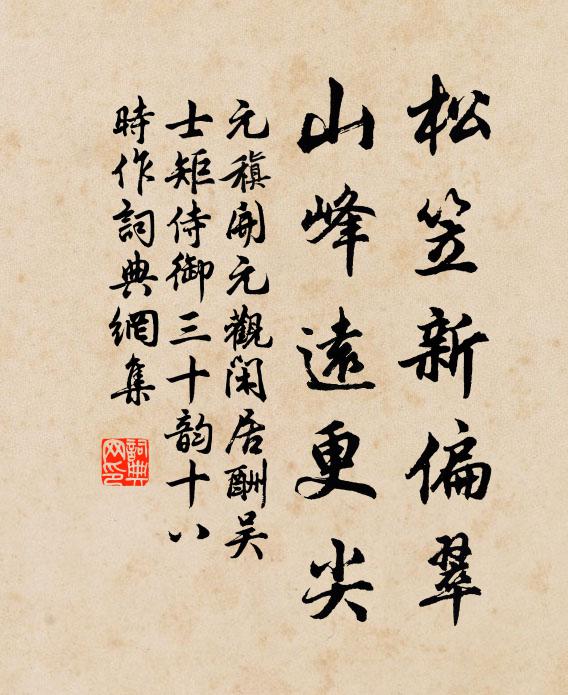 松笠新偏翠
山峰遠更尖
元稹開元觀閑居酬吴
士矩侍御三十韵十八
時作詞典網集
詞典网印